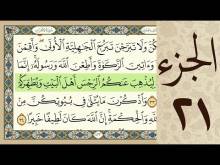 الجزء
٢١
كُنَّ وَلَا تَبَرَّجْنَ تَبَرُّجَ ٱلْجَٰهِلِيَّةِ ٱلْأُولَىٰ وَأَقِمْنَ
وَءَاتِينَ ٱلزَّكَوٰةَ وَأَطِعْنَ ٱللَّهَ وَرَسُولَهُۥٓ إِنَّمَا
لِيُذْهِبَ عَنكُمُ ٱلرِّجْسَ أَهْلَ ٱلْبَيْتِ وَيُطَهِّرَكُ
وَٱذْكُرْنَ مَا يُتْلَىٰ فِى بُيُوتِكُنَّ مِنْ
وَٱلْحِكْمَةِ إِنَّ ٱللَّهَ كَانَ لَطِيفًا خَبِيرًا